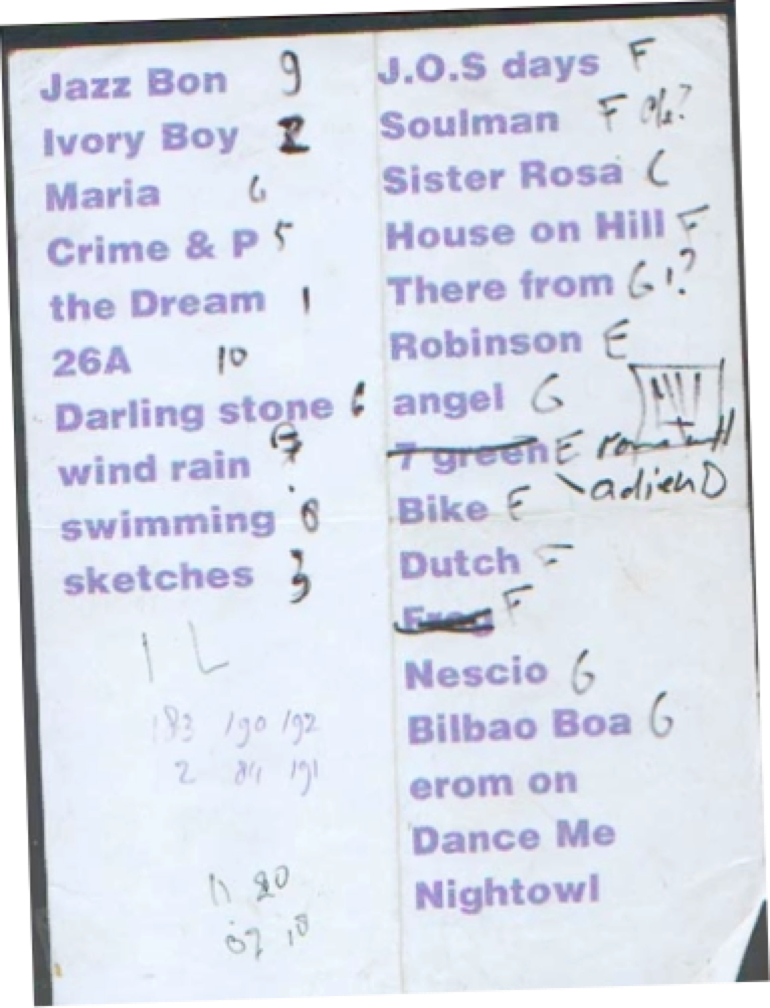 Jazz Bon 9
Ivory Boy 2
Maria 6
Crime & P 5
the Dream 1
26A 10
Darling stone 6
wind rain 7
swimming 8
sketches 3
1 L
183 190 192
2 84 191
11 20
10
J.O.S days F
Soulman F
Sister Rosa C
House on Hill F
There from G ?
Robinson E
angel G
7 green E
adieu D
Bike E
Dutch F
Frog F
Nescio G
Bilbao Boa G
erom on
Dance Me
Nightowl